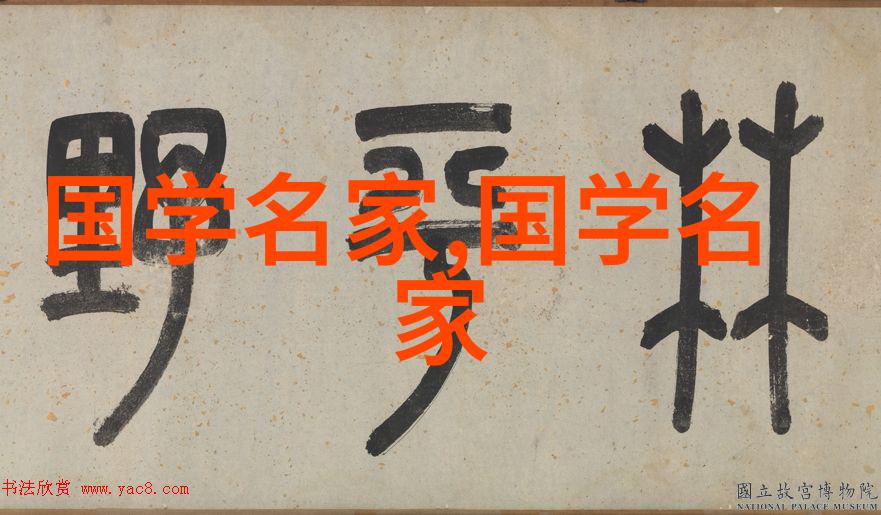 林 野
国学名家,国学名
家
书法欣赏 www.yac8.com
國立故宮博物院
NATIONAL PALACE MUSEUM